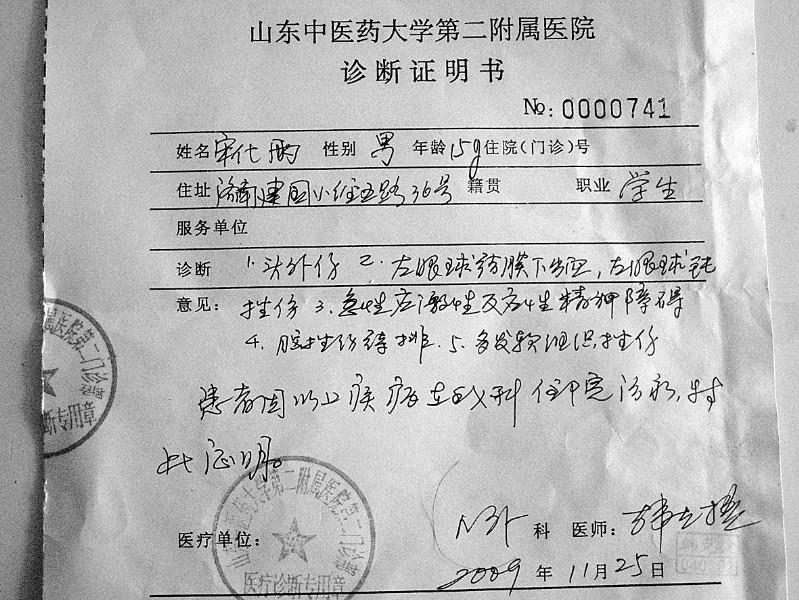 山东中医药大学第二附属医院
诊断证明书
№: 0000741
姓名 宋代 性别 男 年龄 15岁 住院(门诊)号
住址 济南建国小经五路36号 籍贯 职业 学生
服务单位
诊断 1.头外伤 2.左眼球结膜下出血,左眼球钝
意见: 挫伤 3.急性应激性反应性精神障碍
4.脑挫伤待排.5.多发软组织挫伤
患者因以上疾病在我科住院治疗,特
此证明。
医疗单位: 外 科 医师:
2009 年 11月25日
属医院第二门诊部
断专用章
山东中医药大学第二附属医院第二门诊部
医疗诊断专用章